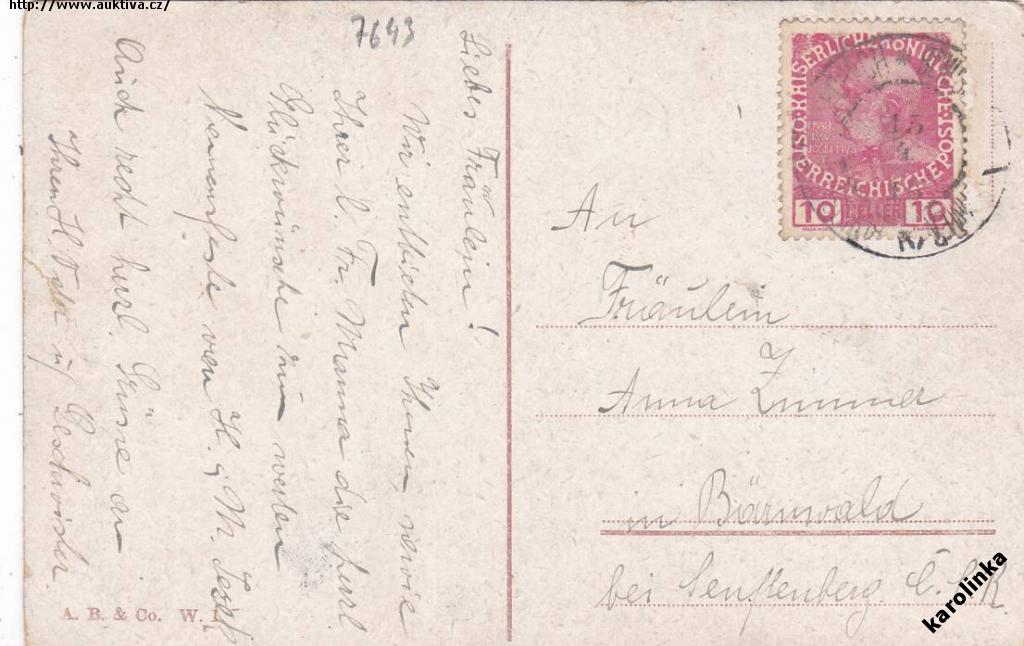 http://www.auktiva.cz/
7643
Liebes Fräulein!
Wir entbieten Ihnen, sowie
Ihrer l. Fr. Mama die herzl
Glückwünsche zum werten
Namensfeste von H. M.
Auch recht herzl. Grüsse an
Ihren H. Vater u Geschwister
A. B. & Co. W. I.
KAISERLICHE KÖNIGLICHE ÖSTERREICHISCHE POST
10 HELLER 10
15
An
Fräulein
Anna Zimmer
in Bärnwald
bei Senftenberg
karolinka